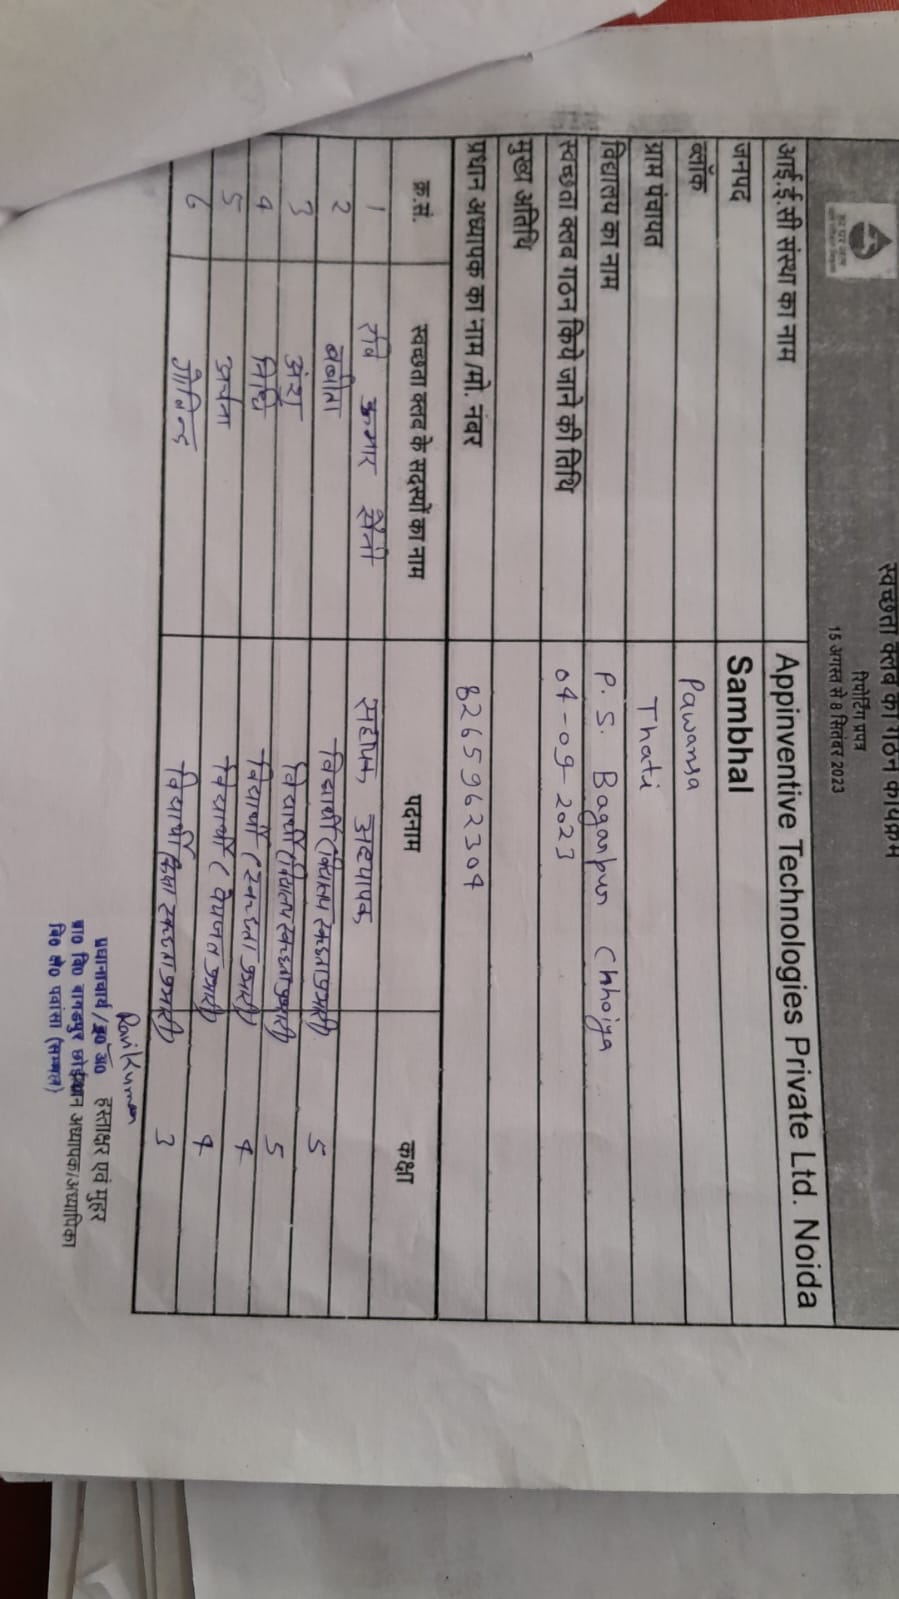 स्वच्छता क्लब का गठन कार्यक्रम
रिपोर्टिंग प्रपत्र
15 अगस्त से 8 सितंबर 2023
आई.ई.सी संस्था का नाम Appinventive Technologies Private Ltd. Noida
जनपद Sambhal
ब्लॉक Pawansa
ग्राम पंचायत Thati
विद्यालय का नाम P.S. Baganpur Chhoiya
स्वच्छता क्लब गठन किये जाने की तिथि 04-09-2023
मुख्य अतिथि
प्रधान अध्यापक का नाम/मो. नंबर 8265962304
क्र.सं. स्वच्छता क्लब के सदस्यों का नाम पदनाम कक्षा
1 रवि कुमार सैनी सहायक अध्यापक
2 बबीता विद्यार्थी 5
3 अंश विद्यार्थी 5
4 निधि विद्यार्थी (स्वच्छता प्रभारी) 4
5 अर्चना विद्यार्थी 4
6 गोविन्द विद्यार्थी (कक्षा स्वच्छता प्रभारी) 3
Ravi Kumar
प्रधानाचार्य/इ० अ० हस्ताक्षर एवं मुहर
प्रा० वि० बागडपुर छोईया प्रधान अध्यापक/अध्यापिका
वि० क्षे० पवांसा (सम्भल)